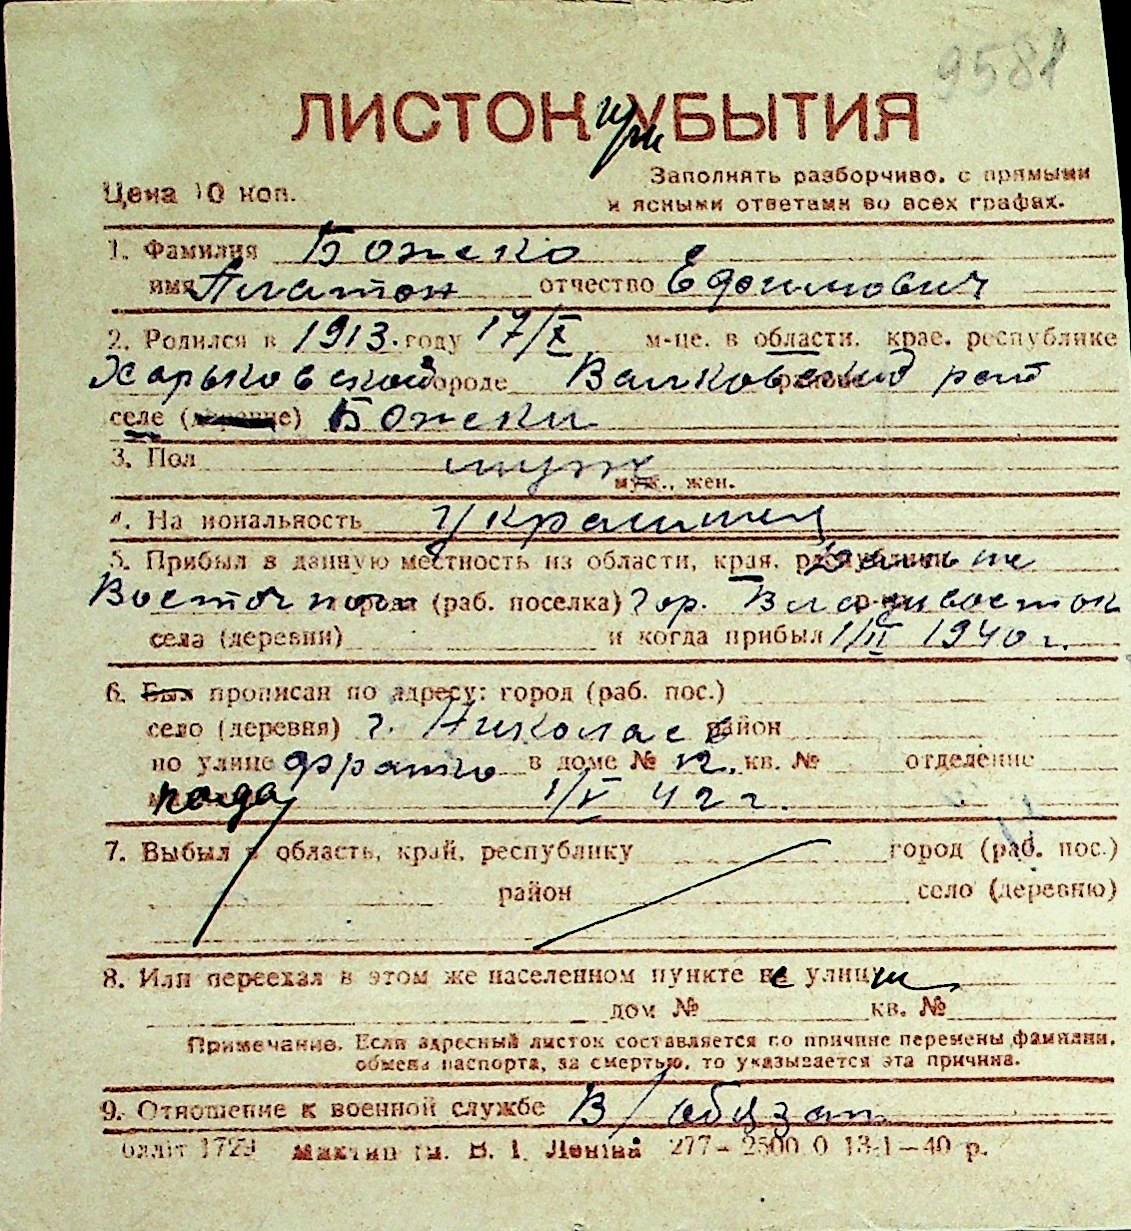 9581
ЛИСТОК при УБЫТИЯ
Цена 10 коп.
Заполнять разборчиво, с прямыми
и ясными ответами во всех графах.
1. Фамилия Божско
имя Платон отчество
2. Родился в 1913. году 17/X м-це. в области, крае, республике
Харьковской городе Валковский район
селе (деревне) Божски
3. Пол муж
муж., жен.
4. Национальность Украинец
5. Прибыл в данную местность из области, края, республики Дальне
Восточного города (раб. поселка) гор. Владивосток
села (деревни) и когда прибыл 1/II 1940 г.
6. Был прописан по адресу: город (раб. пос.)
село (деревня) г. Николаев район
по улице Франко в доме № 12. кв. № отделение
когда 1/V 42 г.
7. Выбыл в область, край, республику город (раб. пос.)
район село (деревню)
8. Или переехал в этом же населенном пункте на улицу
дом № кв. №
Примечание. Если адресный листок составляется по причине перемены фамилии,
обмена паспорта, за смертью, то указывается эта причина.
9. Отношение к военной службе В/обязан
1729 им. В. І. Леніна 277–2500 0 13-1–40 р.